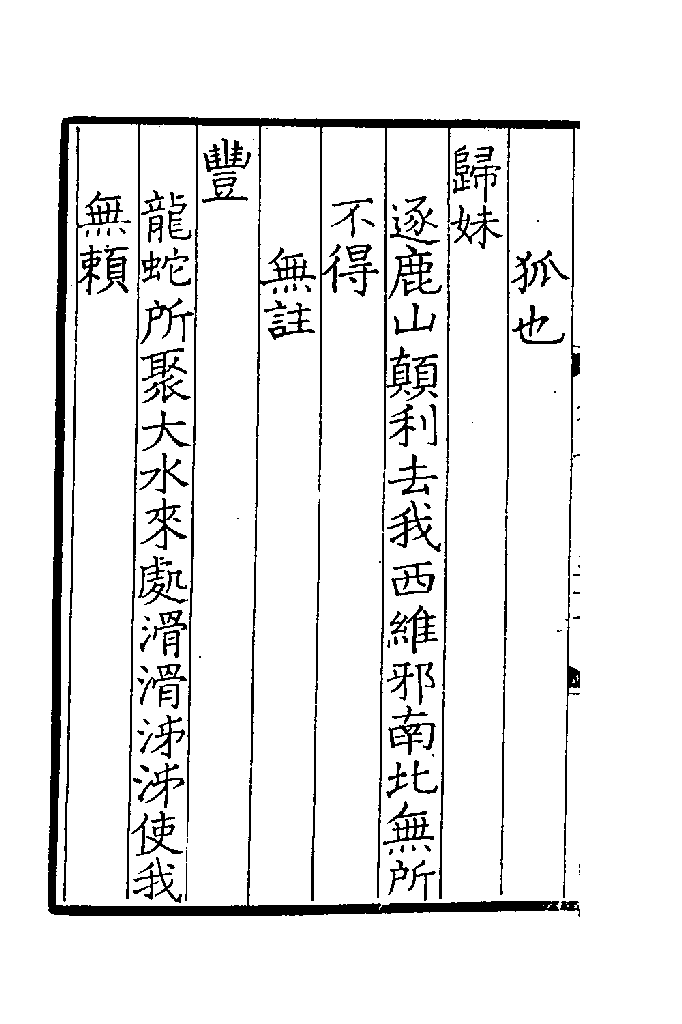 狐也
歸妹
逐鹿山顛利去我西維邪南北無所
不得
無註
豐
龍蛇所聚大水來處滑滑泲泲使我
無賴